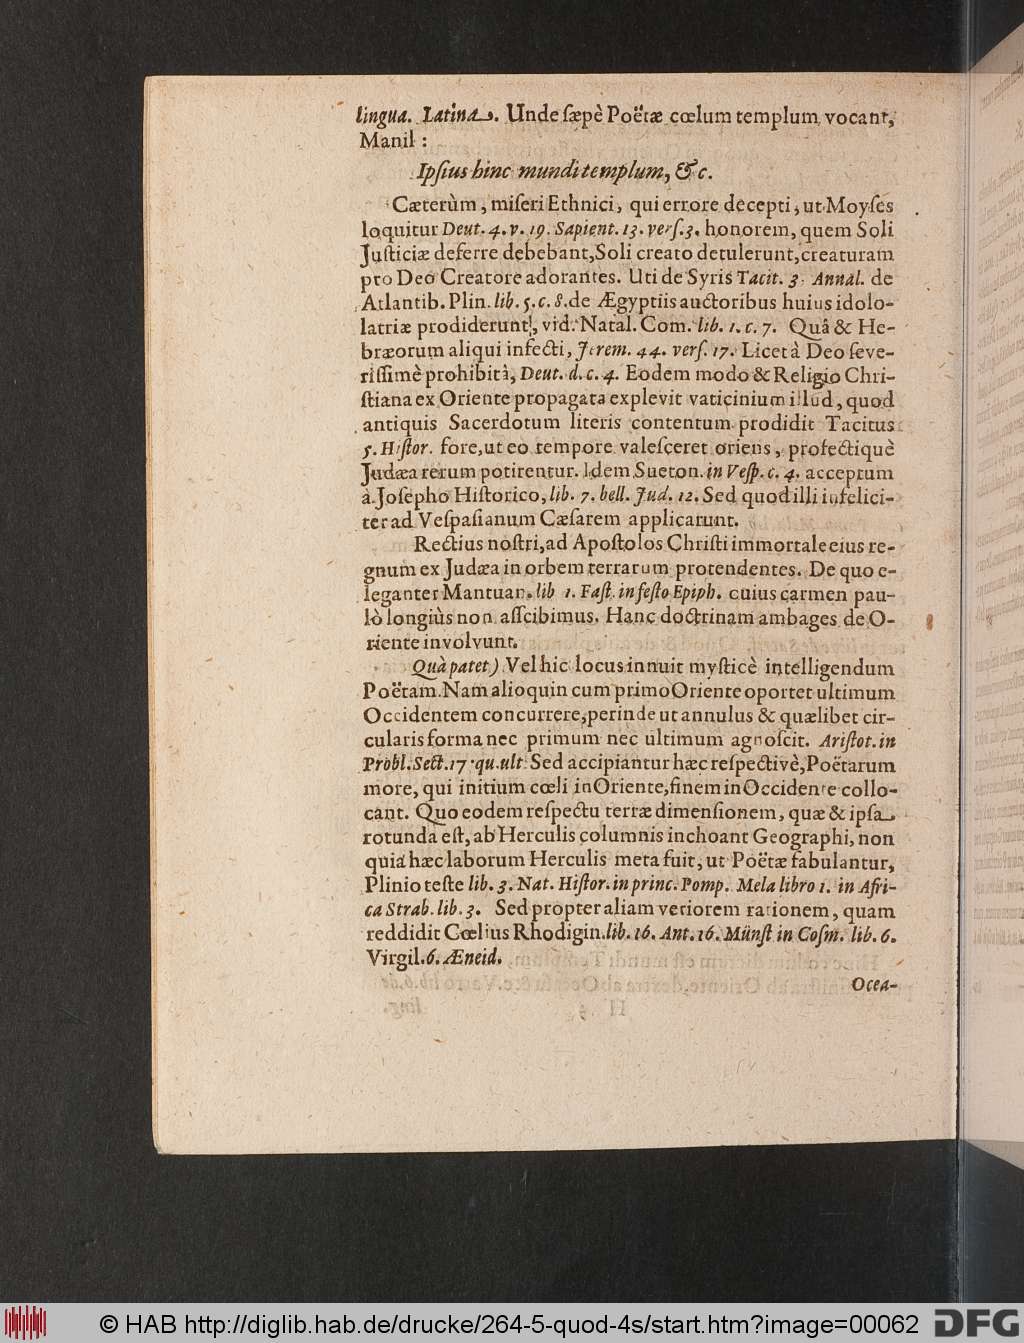 lingua. Latina. Unde ſæpè Poëtæ cœlum templum vocant,
Manil:
Ipſius hinc munditemplum, &c.
Cæterùm, miſeri Ethnici, qui errore decepti, ut Moyſes
loquitur Deut. 4. v. 19. Sapient. 13. verſ. 3. honorem, quem Soli
Juſticiæ deferre debebant, Soli creato detulerunt, creaturam
pro Deo Creatore adorantes. Uti de Syris Tacit. 3. Annal. de
Atlantib. Plin. lib. 5. c. 8. de Ægyptiis auctoribus huius idolo-
latriæ prodiderunt, vid. Natal. Com. lib. 1. c. 7. Quâ & He-
bræorum aliqui infecti, Jerem. 44. verſ. 17. Licet à Deo ſeve-
riſſimè prohibitâ, Deut. d. c. 4. Eodem modo & Religio Chri-
ſtiana ex Oriente propagata explevit vaticinium illud, quod
antiquis Sacerdotum literis contentum prodidit Tacitus
5. Hiſtor. fore, ut eo tempore valeſceret oriens, profectiquè
Judæa rerum potirentur. Idem Sueton. in Veſp. c. 4. acceptum
à Joſepho Hiſtorico, lib. 7. bell. Jud. 12. Sed quod illi infelici-
ter ad Veſpaſianum Cæſarem applicarunt.
Rectius noſtri, ad Apoſtolos Chriſti immortale eius re-
gnum ex Judæa in orbem terrarum protendentes. De quo e-
leganter Mantuan. lib 1. Faſt. in feſto Epiph. cuius carmen pau-
lò longiùs non aſſcibimus. Hanc doctrinam ambages de O-
riente involvunt.
Quà patet) Vel hic locus innuit myſticè intelligendum
Poëtam. Nam alioquin cum primo Oriente oportet ultimum
Occidentem concurrere, perinde ut annulus & quælibet cir-
cularis forma nec primum nec ultimum agnoſcit. Ariſtot. in
Probl. Sect. 17. qu. ult. Sed accipiantur hæc reſpectivè, Poëtarum
more, qui initium cœli in Oriente, finem in Occidente collo-
cant. Quo eodem reſpectu terræ dimenſionem, quæ & ipſa
rotunda eſt, ab Herculis columnis inchoant Geographi, non
quia hæc laborum Herculis meta fuit, ut Poëtæ fabulantur,
Plinio teſte lib. 3. Nat. Hiſtor. in princ. Pomp. Mela libro 1. in Afri-
ca Strab. lib. 3. Sed propter aliam veriorem rationem, quam
reddidit Cœlius Rhodigin. lib. 16. Ant. 16. Münſt in Coſm. lib. 6.
Virgil. 6. Æneid.
Ocea-
© HAB http://diglib.hab.de/drucke/264-5-quod-4s/start.htm?image=00062
DFG